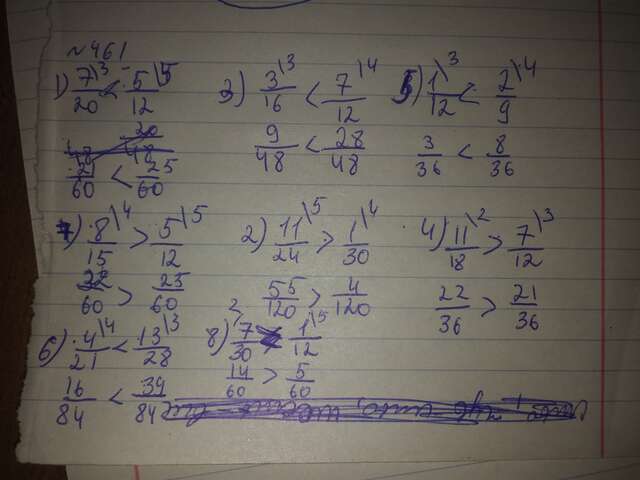 №461
1) 7/20\3 < 5/12\5 2) 3/16\3 < 7/12\4 5) 1/12\3 < 2/9\4
21/60 < 25/60 9/48 < 28/48 3/36 < 8/36
7) 8/15\4 > 5/12\5 2) 11/24\5 > 1/30\4 4) 11/18\2 > 7/12\3
32/60 > 23/60 55/120 > 4/120 22/36 > 21/36
6) 4/21\4 < 13/28\3 8) 7/30\2 > 1/12\5
16/84 < 39/84 14/60 > 5/60